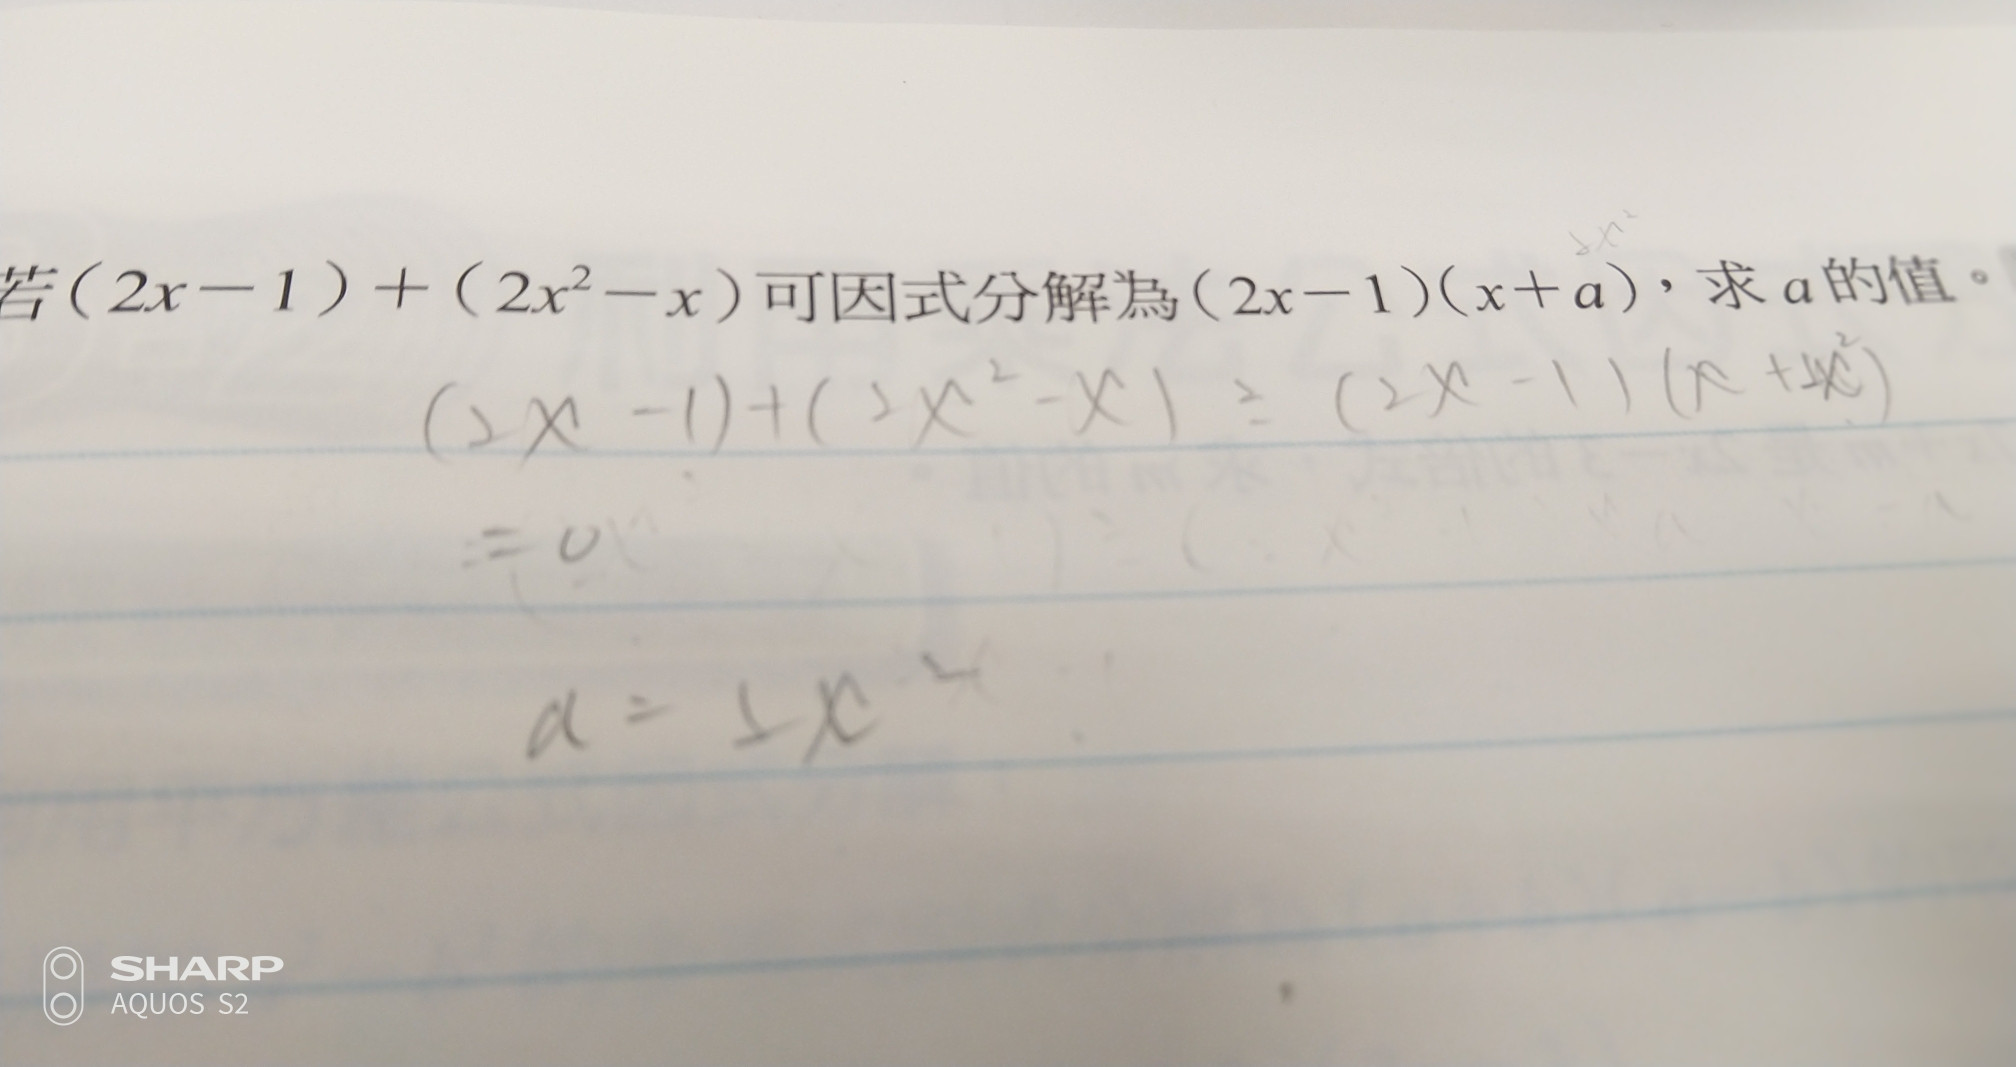 若(2x－1)＋(2x²－x)可因式分解為(2x－1)(x＋a)，求a的值。
(2x-1)+(2x²-x)=(2x-1)(x+
=0
a=
SHARP
AQUOS S2